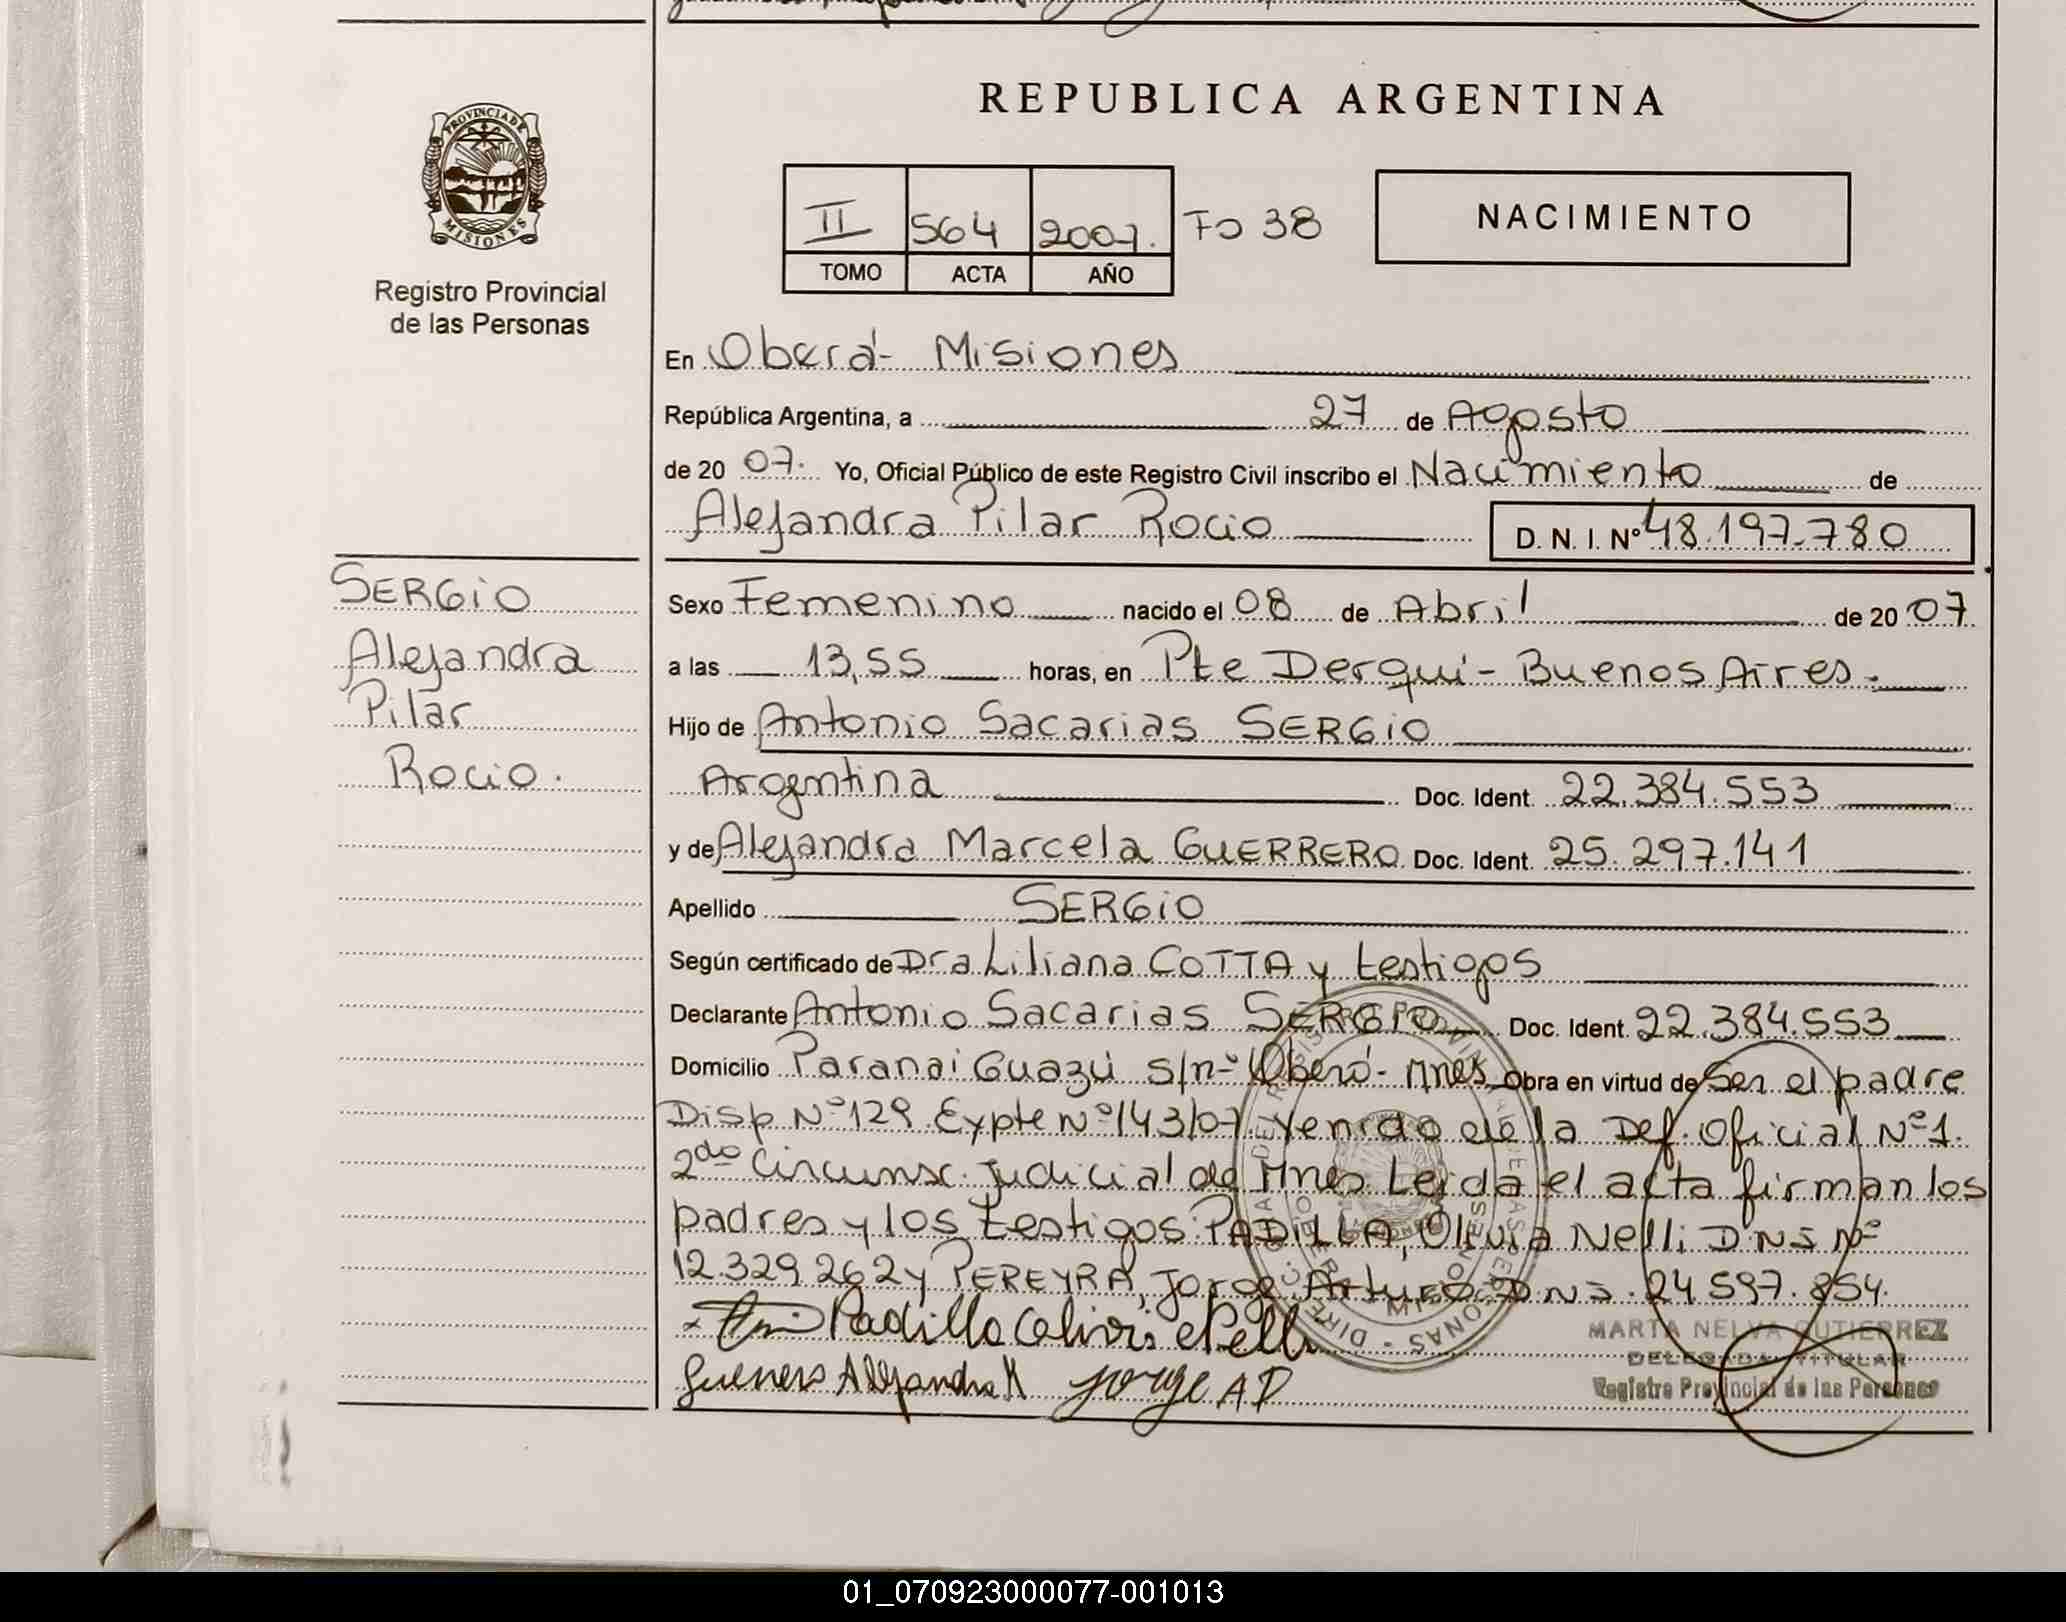 REPUBLICA ARGENTINA
PROVINCIA DE
MISIONES
Registro Provincial
de las Personas
II 564 2007. Fo 38
TOMO ACTA AÑO
NACIMIENTO
En Oberá- Misiones
República Argentina, a 27 de Agosto
de 20 07. Yo, Oficial Público de este Registro Civil inscribo el Nacimiento de
Alejandra Pilar Rocio D. N. I. Nº 48.197.780
SERGIO
Alejandra
Pilar
Rocio.
Sexo Femenino nacido el 08 de Abril de 20 07
a las 13,55 horas, en Pte Derqui - Buenos Aires.
Hijo de Antonio Sacarias SERGIO
Argentina Doc. Ident. 22.384.553
y de Alejandra Marcela GUERRERO Doc. Ident. 25.297.141
Apellido SERGIO
Según certificado de Dra Liliana COTTA y testigos
Declarante Antonio Sacarias SERGIO Doc. Ident. 22.384.553
Domicilio Paranai Guazú s/nº Oberá - Mnes Obra en virtud de Ser el padre
Disp Nº 129 Expte Nº 143/07 Venido de la Def. Oficial Nº 1.
2do Circunsc. Judicial de Mnes Leida el acta firman los
padres y los testigos: PADILLA, Olivia Nelli DNI Nº
12329262 y PEREYRA, Jorge Arturo DNI. 24.597.854.
Padilla Olivia Nelli
Guerrero Alejandra M Jorge A P
MARTA NELVA GUTIERREZ
DELEGADA TITULAR
Registro Provincial de las Personas
01_070923000077-001013